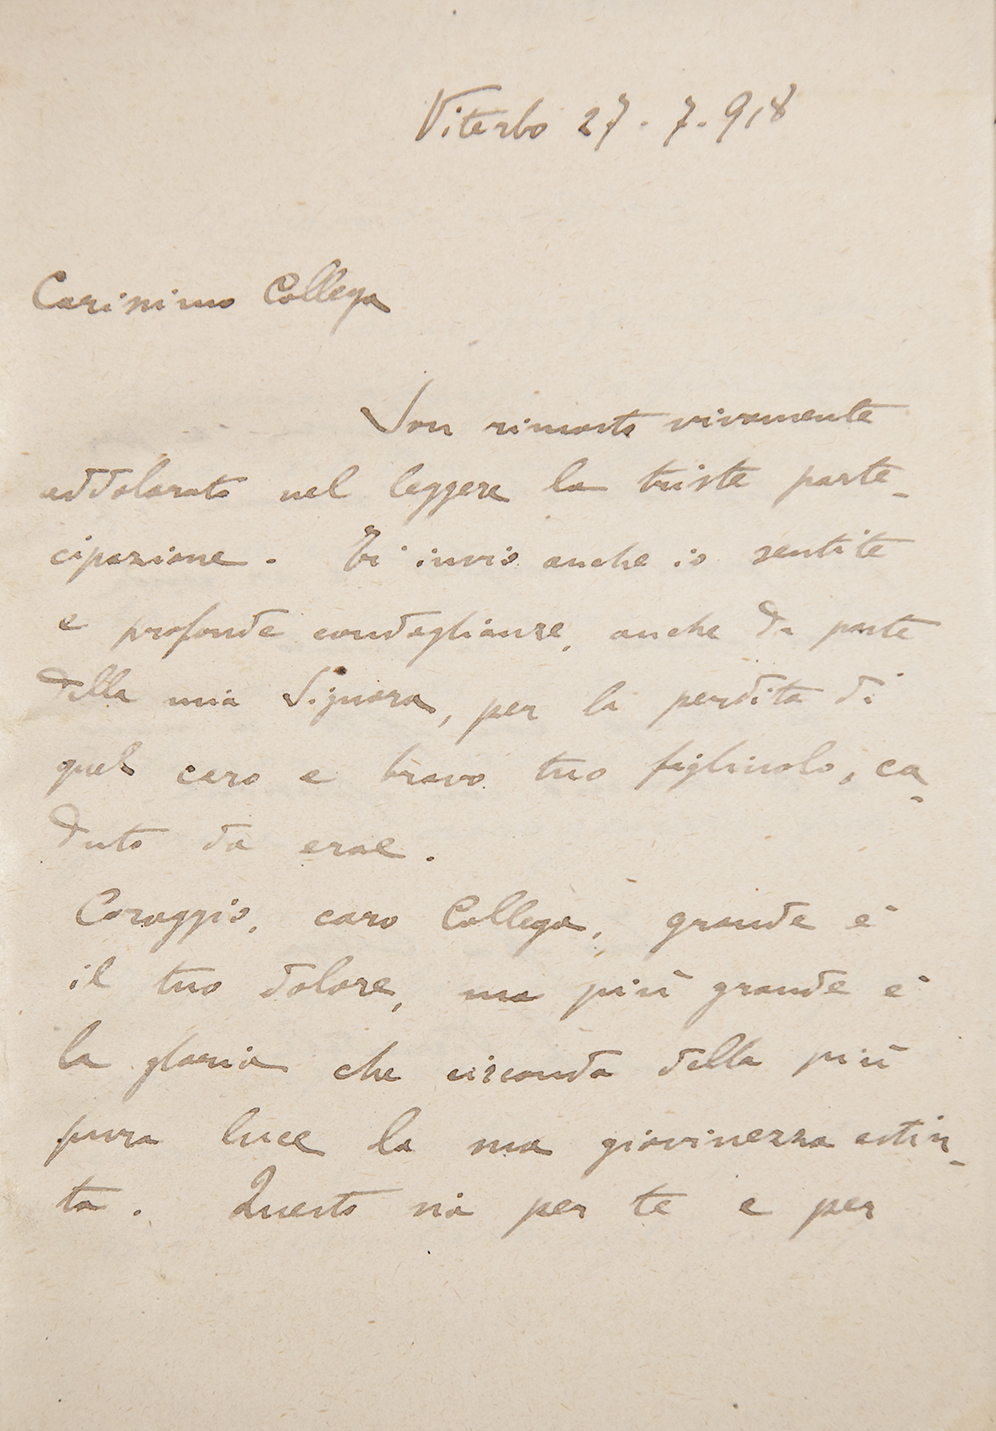 Viterbo 27. 7. 918
Carissimo Collega
Son rimasto vivamente
addolorato nel leggere la triste parte-
cipazione. Ti invio anche io sentite
e profonde condoglianze, anche da parte
della mia Signora, per la perdita di
quel caro e bravo tuo figliuolo, ca-
duto da eroe.
Coraggio, caro Collega, grande è
il tuo dolore, ma più grande è
la gloria che circonda della più
pura luce la sua giovinezza estin-
ta. Questo sia per te e per